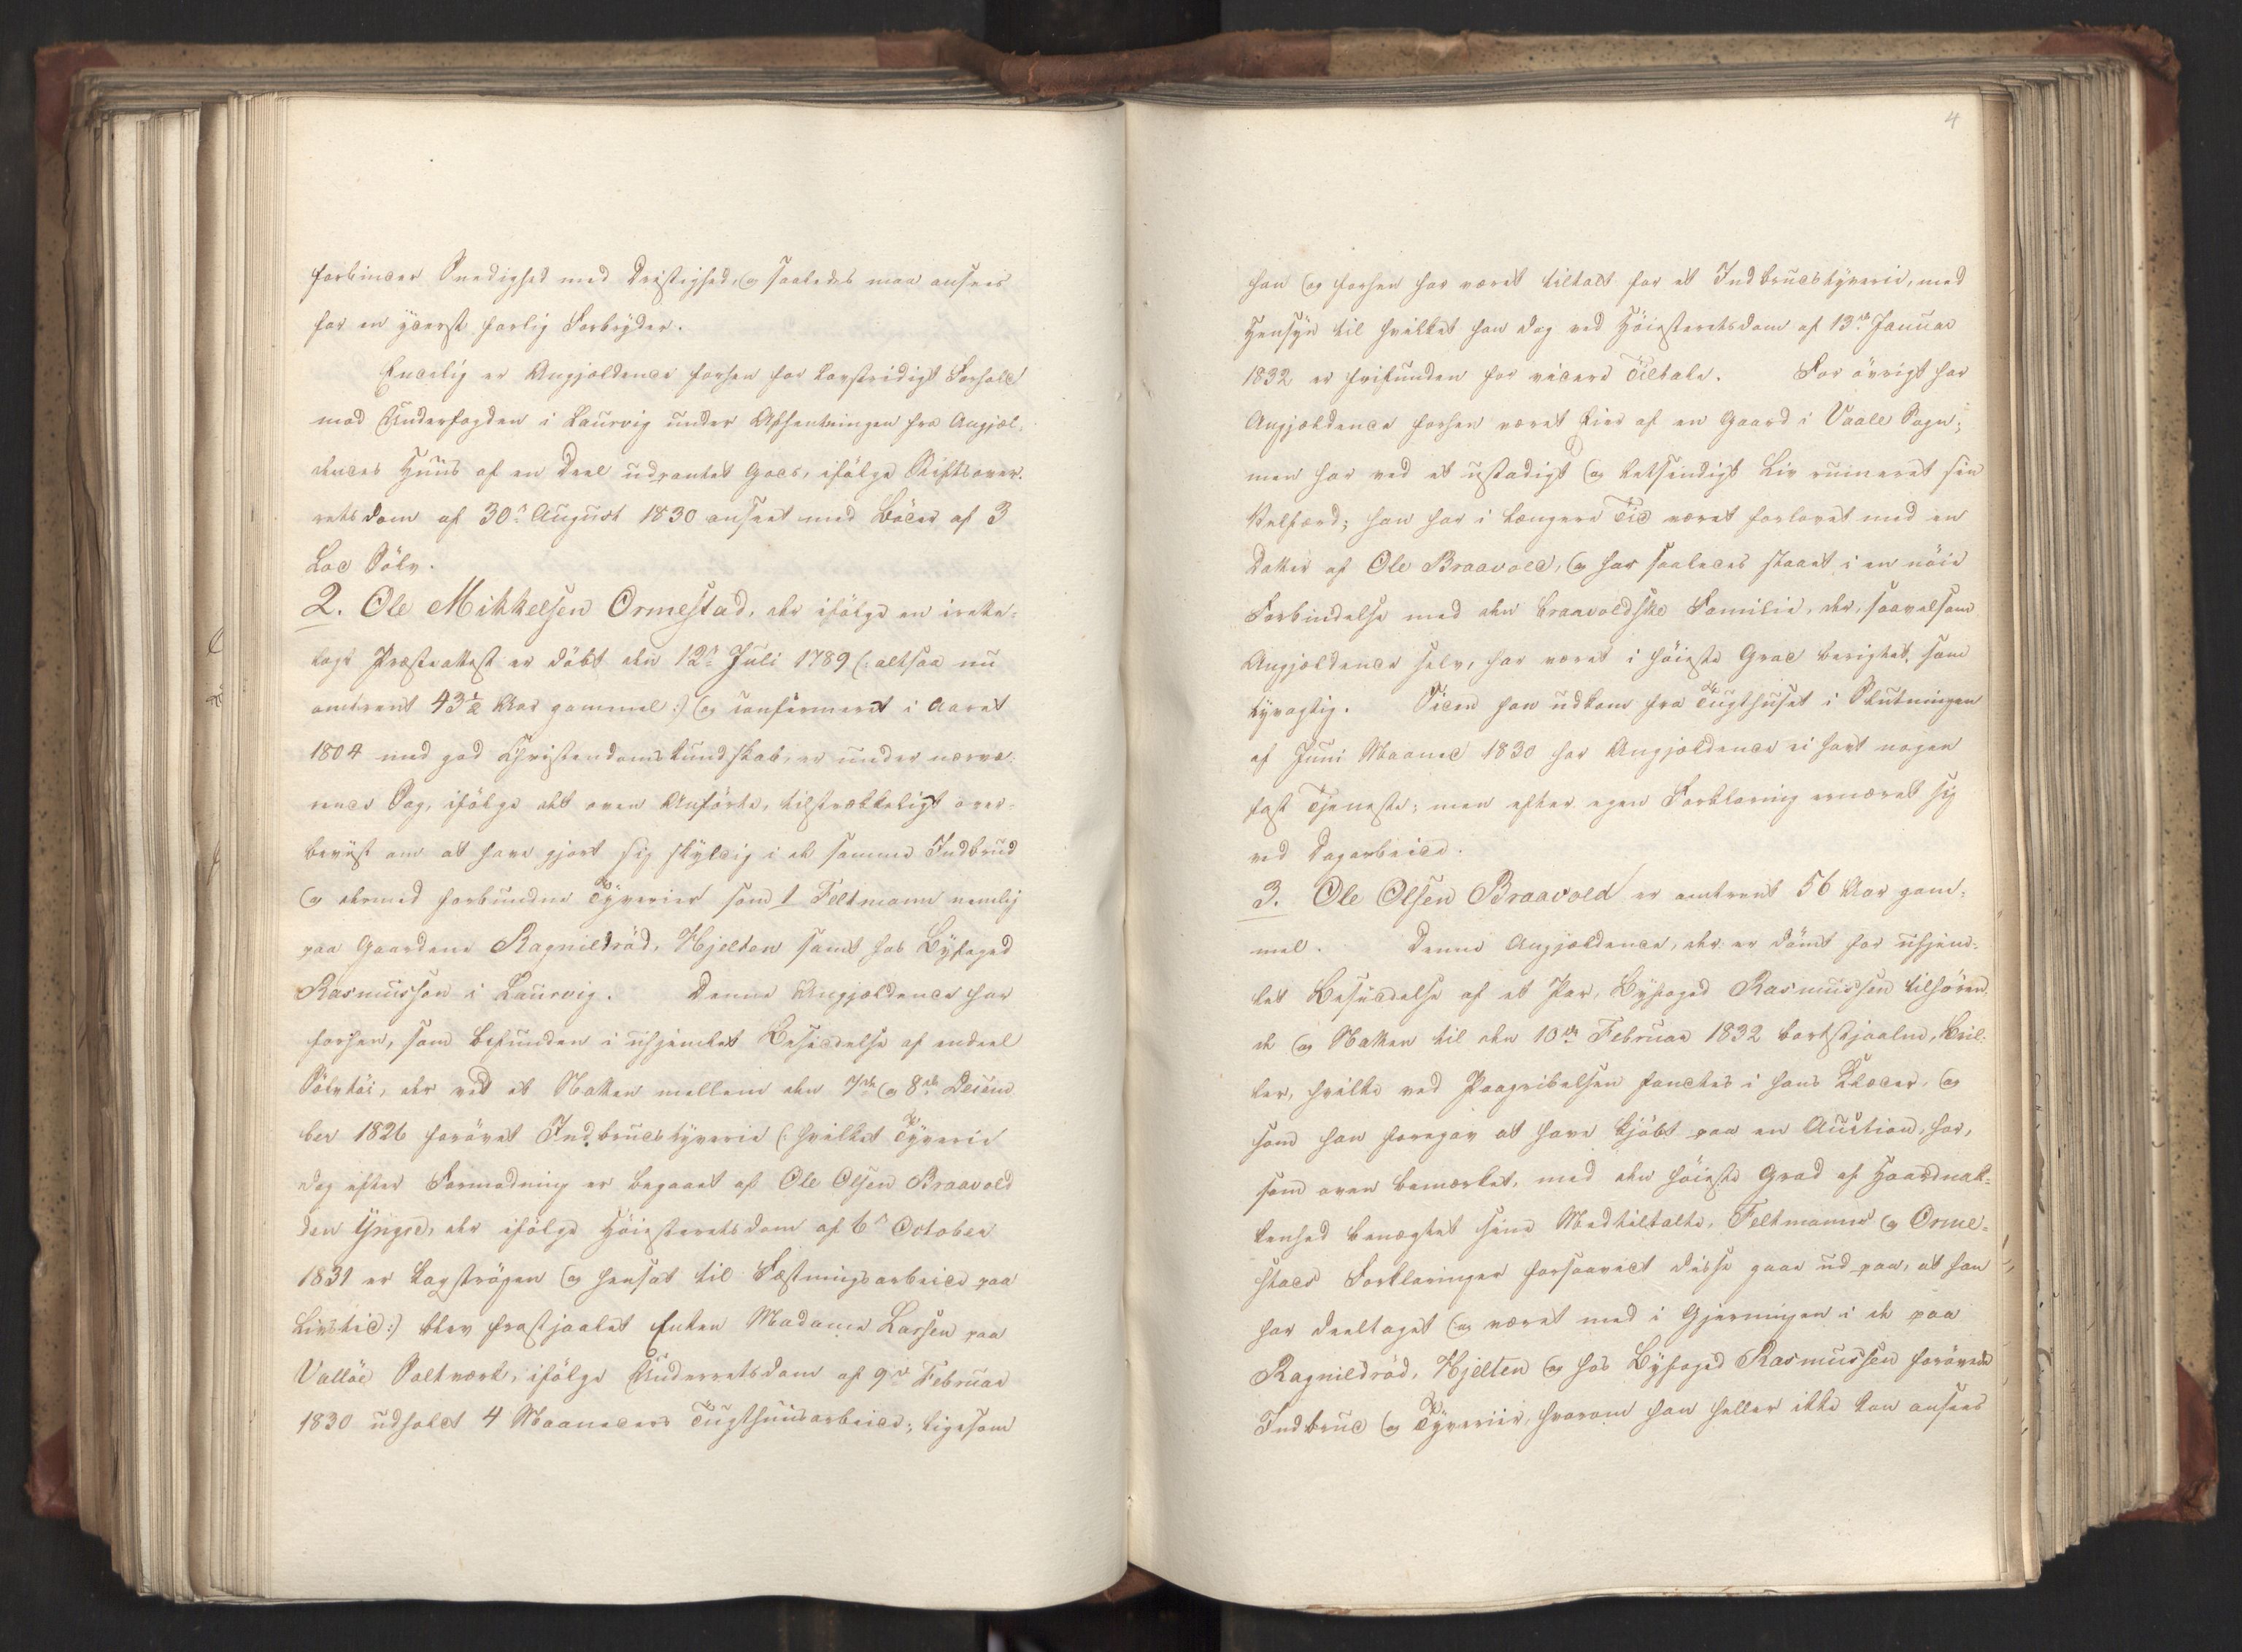 forbinder Snedighed med Dristighed, og saaledes maa ansees
for en yderst farlig Forbryder.
Endelig er Angjældende forhen for lovstridigt Forhold
mod Underfogden i Laurvig under Afhentningen fra Angjæl-
dendes Huus af en Deel udpantet Gods, ifølge Stiftsover-
retsdom af 30te August 1830 anseet med Bøder af 3
Lod Sølv.
2. Ole Mikkelsen Ormestad, der ifølge en irette-
lagt Præsteattest er døbt den 12te Juli 1789 (: altsaa nu
omtrent 43½ Aar gammel :) og confirmeret i Aaret
1804 med god Christendomskundskab, er under nærvæ-
rende Sag, ifølge det oven Anførte, tilstrækkeligt over-
beviist om at have gjort sig skyldig i de samme Indbrud
og dermed forbundne Tyverier som 1 Feltmann nemlig
paa Gaardene Ragnildrød, Hjelten samt hos Byfoged
Rasmussen i Laurvig. Denne Angjældende har
forhen, som befunden i uhjemlet Besiddelse af endeel
Sølvtøi, der ved et Natten mellem den 7de og 8de Decem
ber 1826 forøvet Indbrudstyverie (: hvilket Tyverie
dog efter Formodning er begaaet af Ole Olsen Braavold
den Yngre, der ifølge Høiesteretsdom af 6te October
1831 er kagstrøgen og hensat til Fæstningsarbeide paa
Livstid :) blev frastjaalet Enken Madame Larsen paa
Valløe Saltværk, ifølge Underretsdom af 9de Februar
1830 udholdt 4 Maaneders Tugthuusarbeide; ligesom
4
han og forhen har været tiltalt for et Indbrudstyverie, med
Hensyn til hvilket han dog ved Høiesteretsdom af 13de Januar
1832 er frifunden for videre Tiltale. For øvrigt har
Angjældende forhen været Eier af en Gaard i Vaale Sogn;
men har ved et ustadigt og letsindigt Liv ruineret sin
Velfærd; han har i længere Tid været forlovet med en
Datter af Ole Braavold, og har saaledes staaet i en nøie
Forbindelse med den braavoldske Familie, der, saavelsom
Angjældende selv, har været i høieste Grad berigtet som
tyvagtig. Siden han udkom fra Tugthuset i Slutningen
af Juni Maaned 1830 har Angjældende ei havt nogen
fast Tjeneste; men efter egen Forklaring ernæret sig
ved Dagarbeide.
3. Ole Olsen Braavold er omtrent 56 Aar gam-
mel. Denne Angjældende, der er dømt for uhjem-
let Besiddelse af et Par, Byfoged Rasmussen tilhøren-
de og Natten til den 10de Februar 1832 bortstjaalne, Bril-
ler, hvilke ved Paagribelsen fandtes i hans Klæder, og
som han foregav at have kjøbt paa en Auction, har,
som oven bemærket, med den høieste Grad af Haardnak-
kenhed benægtet sine Medtiltalte, Feltmanns og Orme-
stads Forklaringer forsaavidt disse gaae ud paa, at han
har deeltaget og været med i Gjerningen i de paa
Ragnildrød, Hjelten og hos Byfoged Rasmussen forøvede
Indbrud og Tyverier, hvorom han heller ikke kan ansees